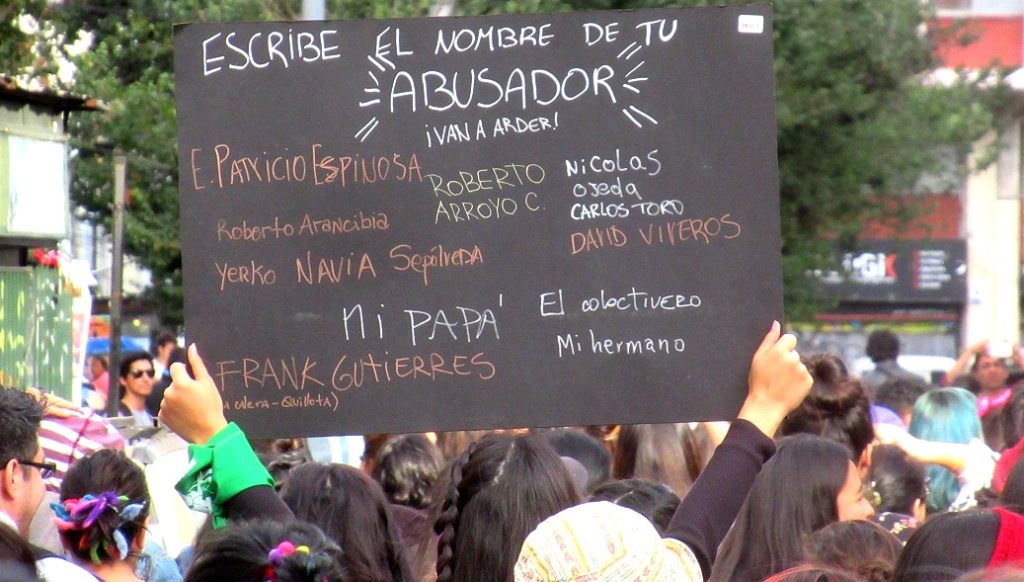 ESCRIBE EL NOMBRE DE TU
ABUSADOR
¡VAN A ARDER!
E. PATRICIO ESPINOSA
ROBERTO
ARROYO C.
Nicolas
Ojeda
CARLOS TORO
DAVID VIVEROS
Roberto Arancibia
Yerko NAVIA Sepúlveda
Mi PAPÁ
El colectivero
Mi hermano
FRANK GUTIERRES
CALERA - QUILLOTA)